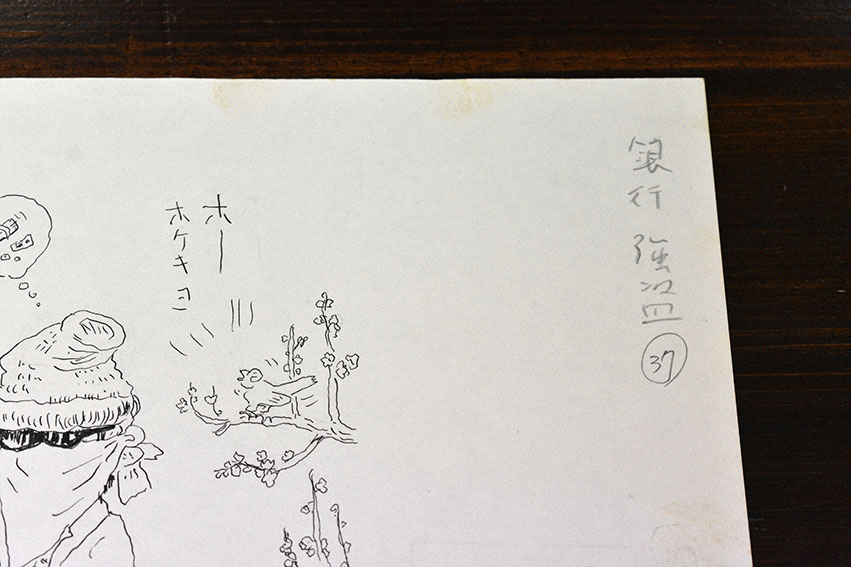 銀行強盗
37
ホー
ホケキョ